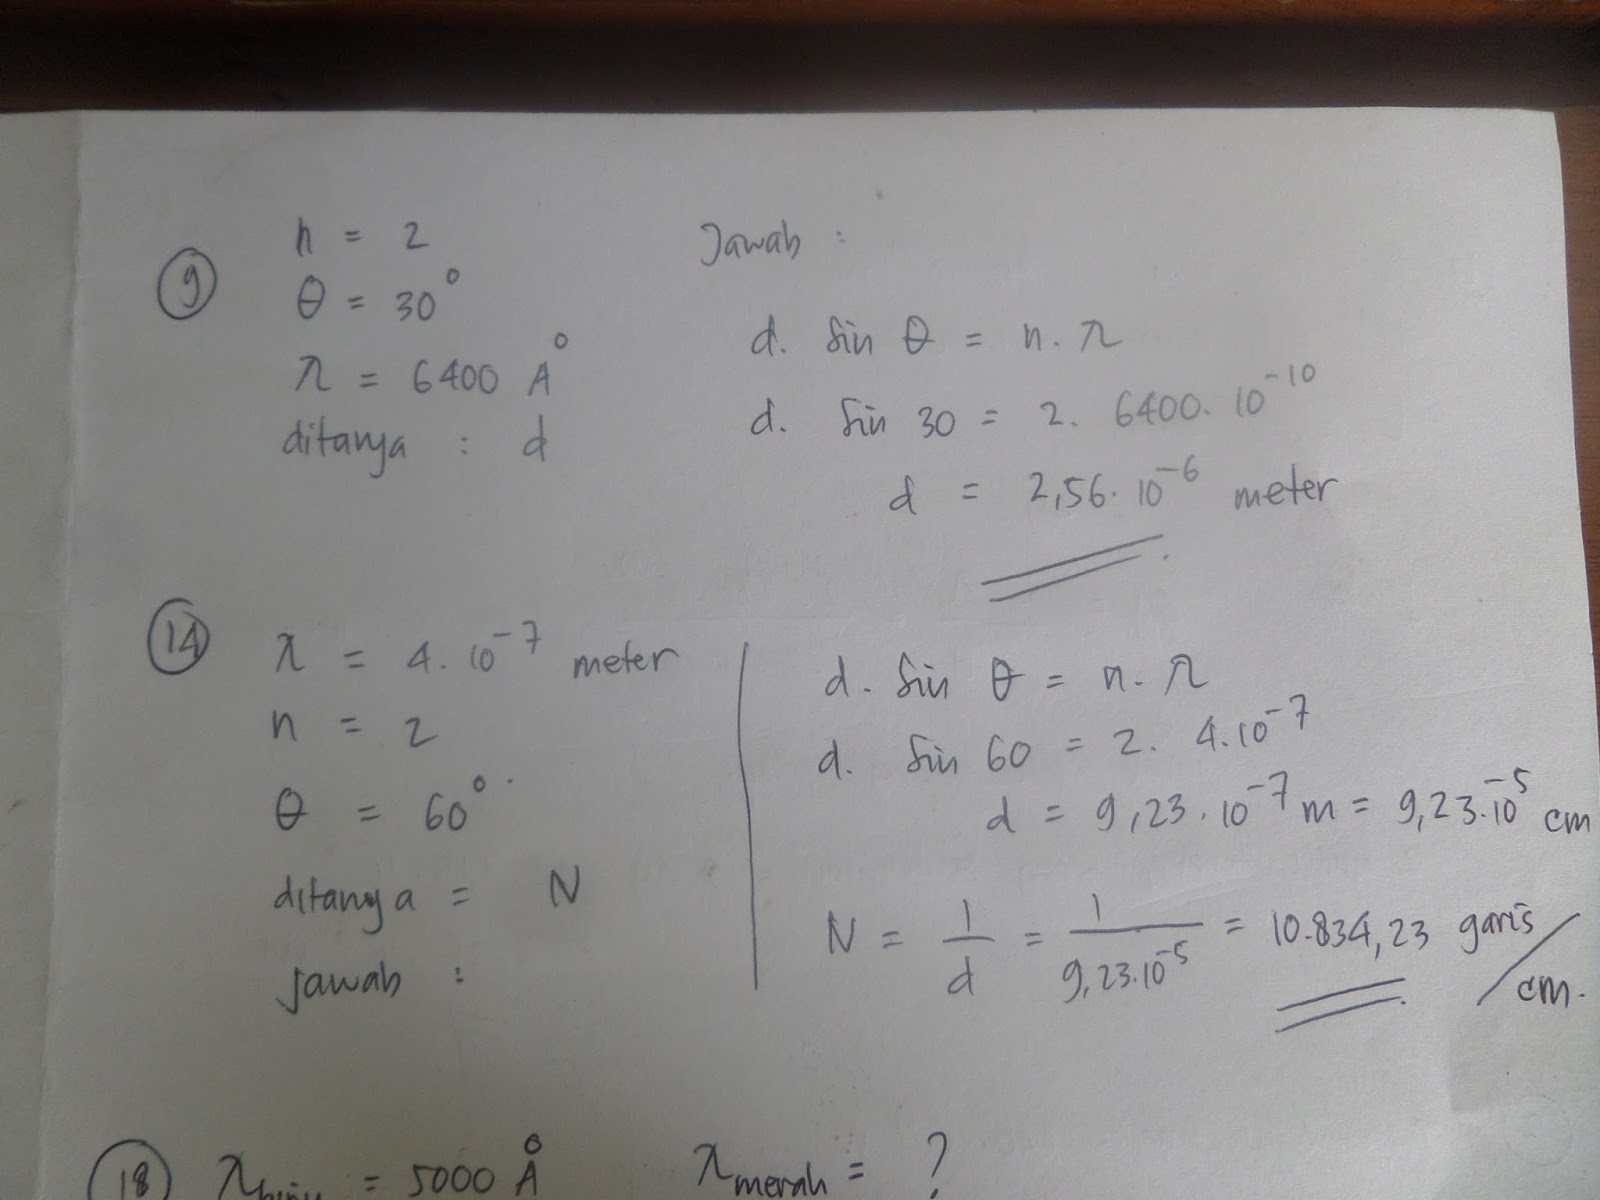 9
n = 2
θ = 30°
λ = 6400 Å
ditanya : d
Jawab :
d. sin θ = n. λ
d. sin 30 = 2. 6400. 10⁻¹⁰
d = 2,56. 10⁻⁶ meter
14
λ = 4. 10⁻⁷ meter
n = 2
θ = 60°
ditanya = N
jawab :
d. sin θ = n. λ
d. sin 60 = 2. 4.10⁻⁷
d = 9,23. 10⁻⁷ m = 9,23.10⁻⁵ cm
N = 1/d = 1/9,23.10⁻⁵ = 10.834,23 garis/cm.
18 λ = 5000 Å λ merah = ?